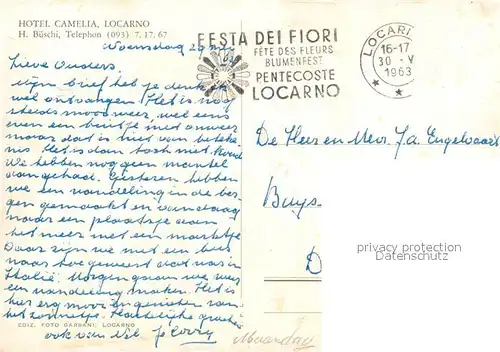 HOTEL CAMELIA, LOCARNO
H. Büschi, Telephon (093) 7. 17. 67
Woensdag 29 mei
Lieve Ouders
Mijn brief heb je denk ik
wel ontvangen. Het is nog
steeds mooi weer, wel eens
even een buitje met onweer
maar dat is niet van beteke
nis. Het is dan toch niet koud.
We hebben nog geen mantel
aangehad. Gisteren hebben
we een wandeling in de ber
gen gemaakt en vandaag
naar een plaatsje aan
het meer met een marktje
Daar zijn we met een bus
naar toe geweest dat was in
Italië. Morgen gaan we weer
een wandeling maken. Het is
hier erg mooi en genieten van
het zonnetje. Hartelijke groeten
ook van Nel. Je Corry
EDIZ. FOTO GARBANI, LOCARNO
FESTA DEI FIORI
FÊTE DES FLEURS
BLUMENFEST
PENTECOSTE
LOCARNO
LOCARN
16-17
30 - V
1963
De Heer en Mevr. J. A. Engelvaart
Buys
D
privacy protection
Maandag